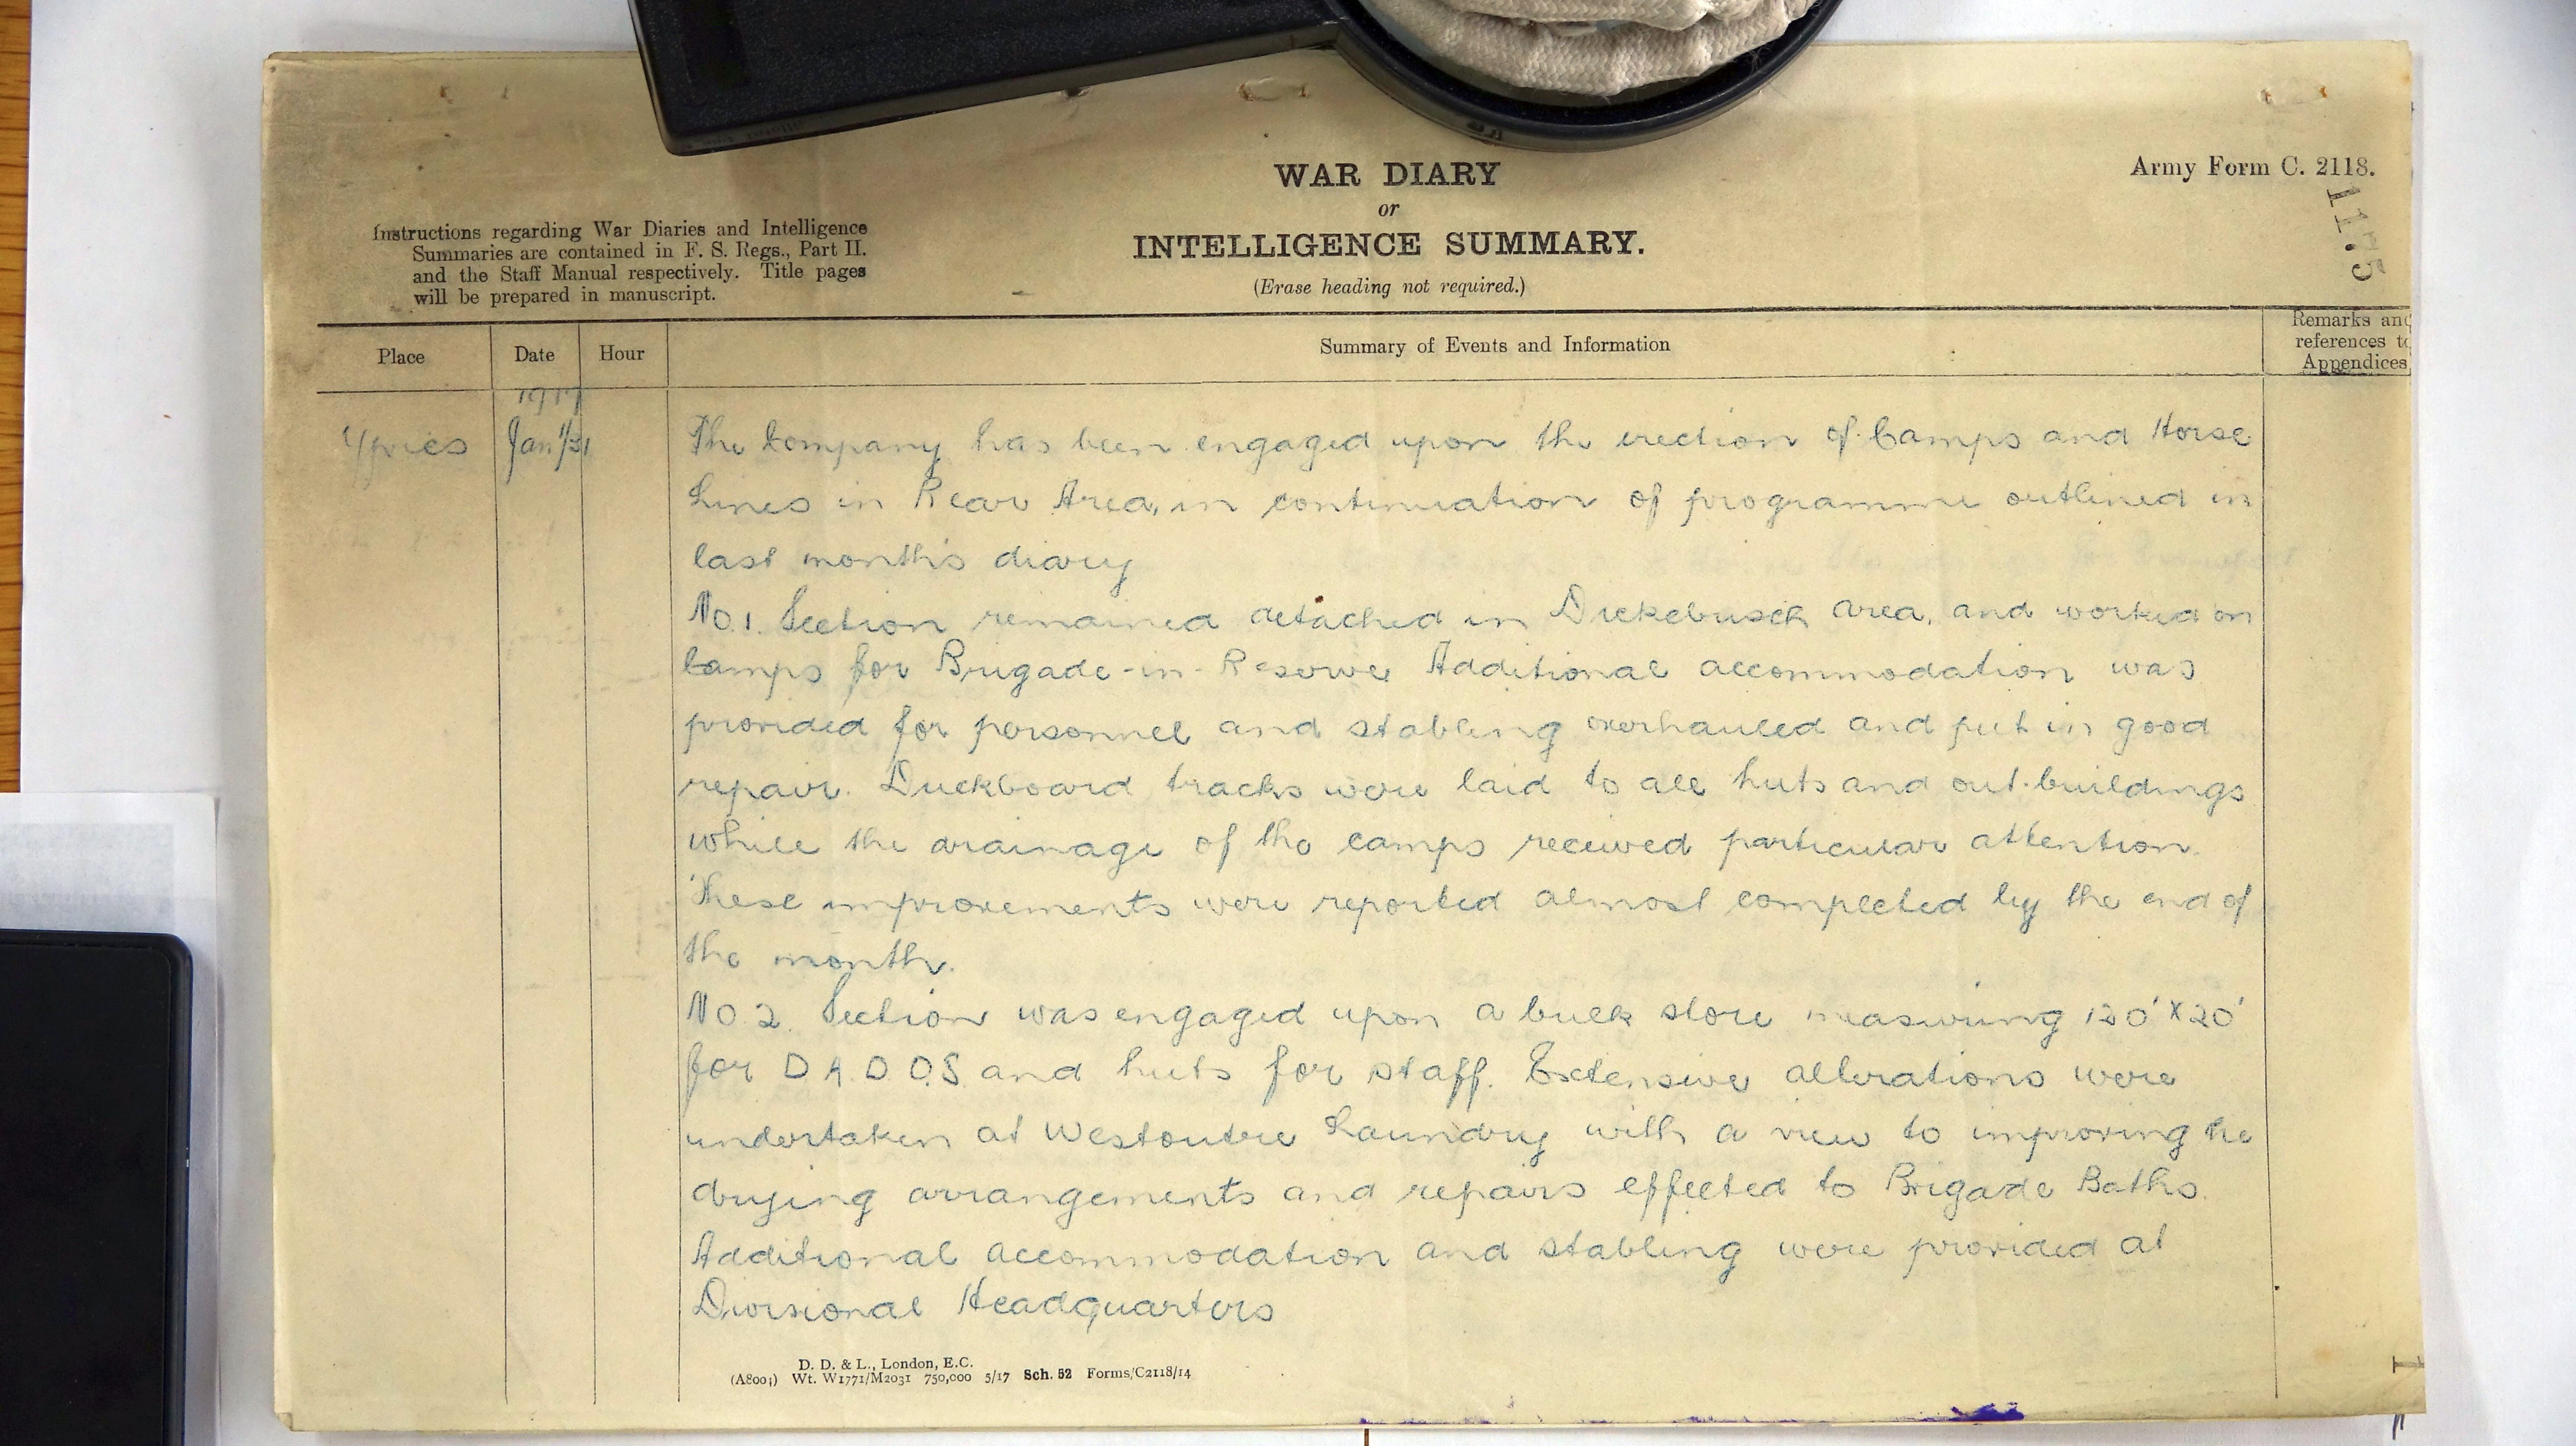 WAR DIARY
or
INTELLIGENCE SUMMARY.
(Erase heading not required.)
Army Form C. 2118.
11.5
Instructions regarding War Diaries and Intelligence
Summaries are contained in F. S. Regs., Part II.
and the Staff Manual respectively. Title pages
will be prepared in manuscript.
Place Date Hour Summary of Events and Information
Remarks and
references to
Appendices
Ypres Jan 1/31 The Company has been engaged upon the erection of Camps and Horse
Lines in Rear Area, in continuation of programme outlined in
last month's diary
No. 1. Section remained detached in Dickebusch area, and worked on
Camps for Brigade-in-Reserve Additional accommodation was
provided for personnel and stabling overhauled and put in good
repair. Duckboard tracks were laid to all huts and out-buildings
while the drainage of the camps received particular attention.
These improvements were reported almost completed by the end of
the month.
No 2. Section was engaged upon a brick store measuring 120' x 20'
for D.A.D.O.S. and huts for staff. Extensive alterations were
undertaken at Westoutre Laundry with a view to improving the
drying arrangements and repairs effected to Brigade Baths.
Additional accommodation and stabling were provided at
Divisional Headquarters
D. D. & L., London, E.C.
Wt. W1771/M2031 750,000 5/17 Sch. 52 Forms/C2118/14